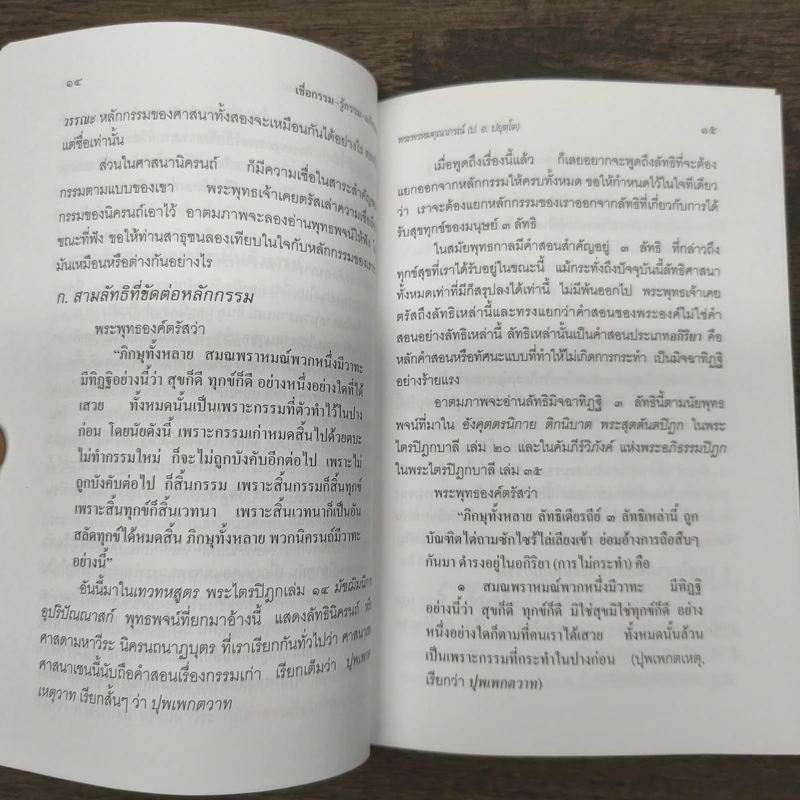 ๑๔
เชื่อกรรม-รู้กรรม-แก้กรรม
วรรณะ หลักกรรมของศาสนาทั้งสองจะเหมือนกันได้อย่างไร
แต่ชื่อเท่านั้น
ส่วนในศาสนานิครนถ์ ก็มีความเชื่อในสาระสำคัญ
กรรมตามแบบของเขา พระพุทธเจ้าเคยตรัสเล่าความเชื่อ
กรรมของนิครนถ์เอาไว้ อาตมภาพจะลองอ่านพุทธพจน์ให้ฟัง
ขณะที่ฟัง ขอให้ท่านสาธุชนลองเทียบในใจกับหลักกรรมของเรา
มันเหมือนหรือต่างกันอย่างไร
ก. สามลัทธิที่ขัดต่อหลักกรรม
พระพุทธองค์ตรัสว่า
“ภิกษุทั้งหลาย สมณพราหมณ์พวกหนึ่งมีวาทะ
มีทิฏฐิอย่างนี้ว่า สุขก็ดี ทุกข์ก็ดี อย่างหนึ่งอย่างใดที่ได้
เสวย ทั้งหมดนั้นเป็นเพราะกรรมที่ตัวทำไว้ในปาง
ก่อน โดยนัยดังนี้ เพราะกรรมเก่าหมดสิ้นไปด้วยตบะ
ไม่ทำกรรมใหม่ ก็จะไม่ถูกบังคับอีกต่อไป เพราะไม่
ถูกบังคับต่อไป ก็สิ้นกรรม เพราะสิ้นกรรมก็สิ้นทุกข์
เพราะสิ้นทุกข์ก็สิ้นเวทนา เพราะสิ้นเวทนาก็เป็นอัน
สลัดทุกข์ได้หมดสิ้น ภิกษุทั้งหลาย พวกนิครนถ์มีวาทะ
อย่างนี้”
อันนี้มาในเทวทหสูตร พระไตรปิฎกเล่ม ๑๔ มัชฌิมนิกาย
อุปริปัณณาสก์ พุทธพจน์ที่ยกมาอ้างนี้ แสดงลัทธินิครนถ์ หรือ
ศาสดามหาวีระ นิครนถนาฏบุตร ที่เราเรียกกันทั่วไปว่า ศาสนาเชน
ศาสนาเชนนี้นับถือคำสอนเรื่องกรรมเก่า เรียกเต็มว่า ปุพเพกต
เหตุวาท เรียกสั้นๆ ว่า ปุพเพกตวาท
พระพรหมคุณาภรณ์ (ป. อ. ปยุตฺโต)
๑๕
เมื่อพูดถึงเรื่องนี้แล้ว ก็เลยอยากจะพูดถึงลัทธิที่จะต้อง
แยกออกจากหลักกรรมให้ครบทั้งหมด ขอให้กำหนดไว้ในใจทีเดียว
ว่า เราจะต้องแยกหลักกรรมของเราออกจากลัทธิที่เกี่ยวกับการได้
รับสุขทุกข์ของมนุษย์ ๓ ลัทธิ
ในสมัยพุทธกาลมีคำสอนสำคัญอยู่ ๓ ลัทธิ ที่กล่าวถึง
ทุกข์สุขที่เราได้รับอยู่ในขณะนี้ แม้กระทั่งถึงปัจจุบันนี้ลัทธิศาสนา
ทั้งหมดเท่าที่มีก็สรุปลงได้เท่านี้ ไม่มีพ้นออกไป พระพุทธเจ้าเคย
ตรัสถึงลัทธิเหล่านี้และทรงแยกว่าคำสอนของพระองค์ไม่ใช่คำ
สอนอย่างลัทธิเหล่านี้ ลัทธิเหล่านั้นเป็นคำสอนประเภทอกิริยา คือ
หลักคำสอนหรือทัศนะแบบที่ทำให้ไม่เกิดการกระทำ เป็นมิจฉาทิฏฐิ
อย่างร้ายแรง
อาตมภาพจะอ่านลัทธิมิจฉาทิฏฐิ ๓ ลัทธินี้ตามนัยพุทธ
พจน์ที่มาใน อังคุตตรนิกาย ติกนิบาต พระสุตตันตปิฎก ในพระ
ไตรปิฎกบาลี เล่ม ๒๐ และในคัมภีร์วิภังค์ แห่งพระอภิธรรมปิฎก
ในพระไตรปิฎกบาลี เล่ม ๓๕
พระพุทธองค์ตรัสว่า
“ภิกษุทั้งหลาย ลัทธิเดียรถีย์ ๓ ลัทธิเหล่านี้ ถูก
บัณฑิตไต่ถามซักไซร้ไล่เลียงเข้า ย่อมอ้างการถือสืบๆ
กันมา ดำรงอยู่ในอกิริยา (การไม่กระทำ) คือ
๑ สมณพราหมณ์พวกหนึ่งมีวาทะ มีทิฏฐิ
อย่างนี้ว่า สุขก็ดี ทุกข์ก็ดี มิใช่สุขมิใช่ทุกข์ก็ดี อย่าง
หนึ่งอย่างใดก็ตามที่คนเราได้เสวย ทั้งหมดนั้นล้วน
เป็นเพราะกรรมที่กระทำในปางก่อน (ปุพเพกตเหตุ,
เรียกว่า ปุพเพกตวาท)